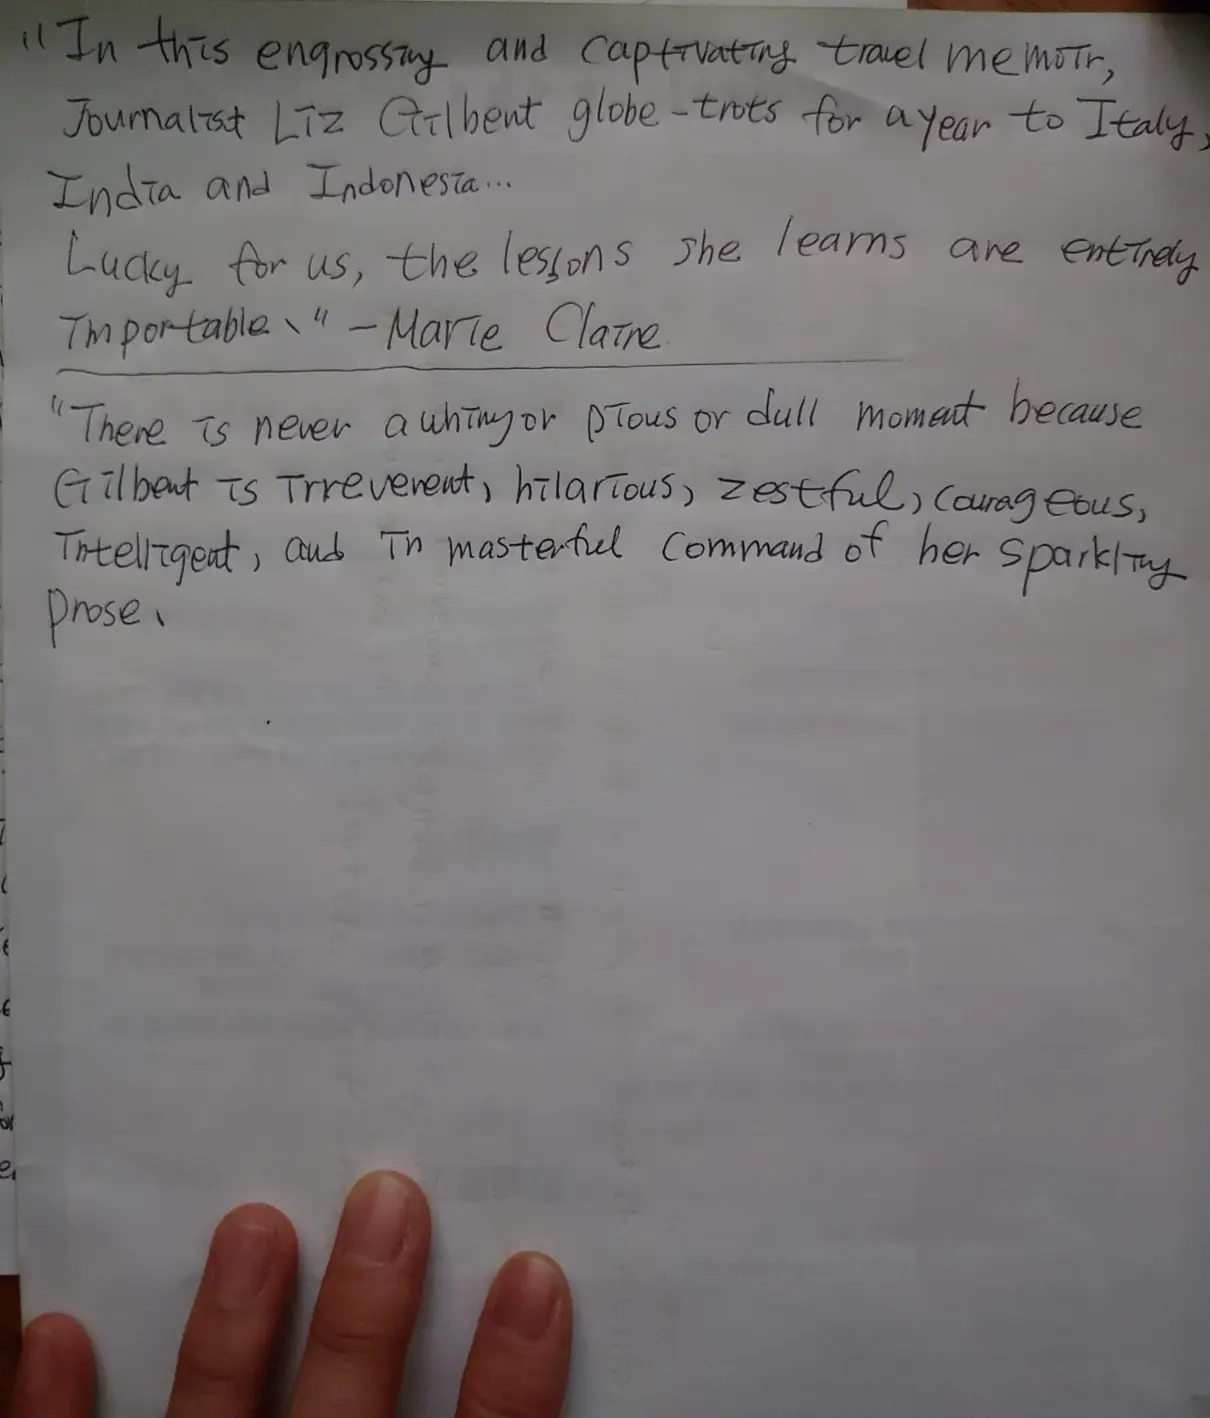 "In this engrossing and captivating travel memoir,
Journalist Liz Gilbert globe-trots for a year to Italy,
India and Indonesia...
Lucky for us, the lessons she learns are entirely
importable." - Marie Claire
"There is never a whiny or pious or dull moment because
Gilbert is irreverent, hilarious, zestful, courageous,
intelligent, and in masterful command of her sparkling
prose.